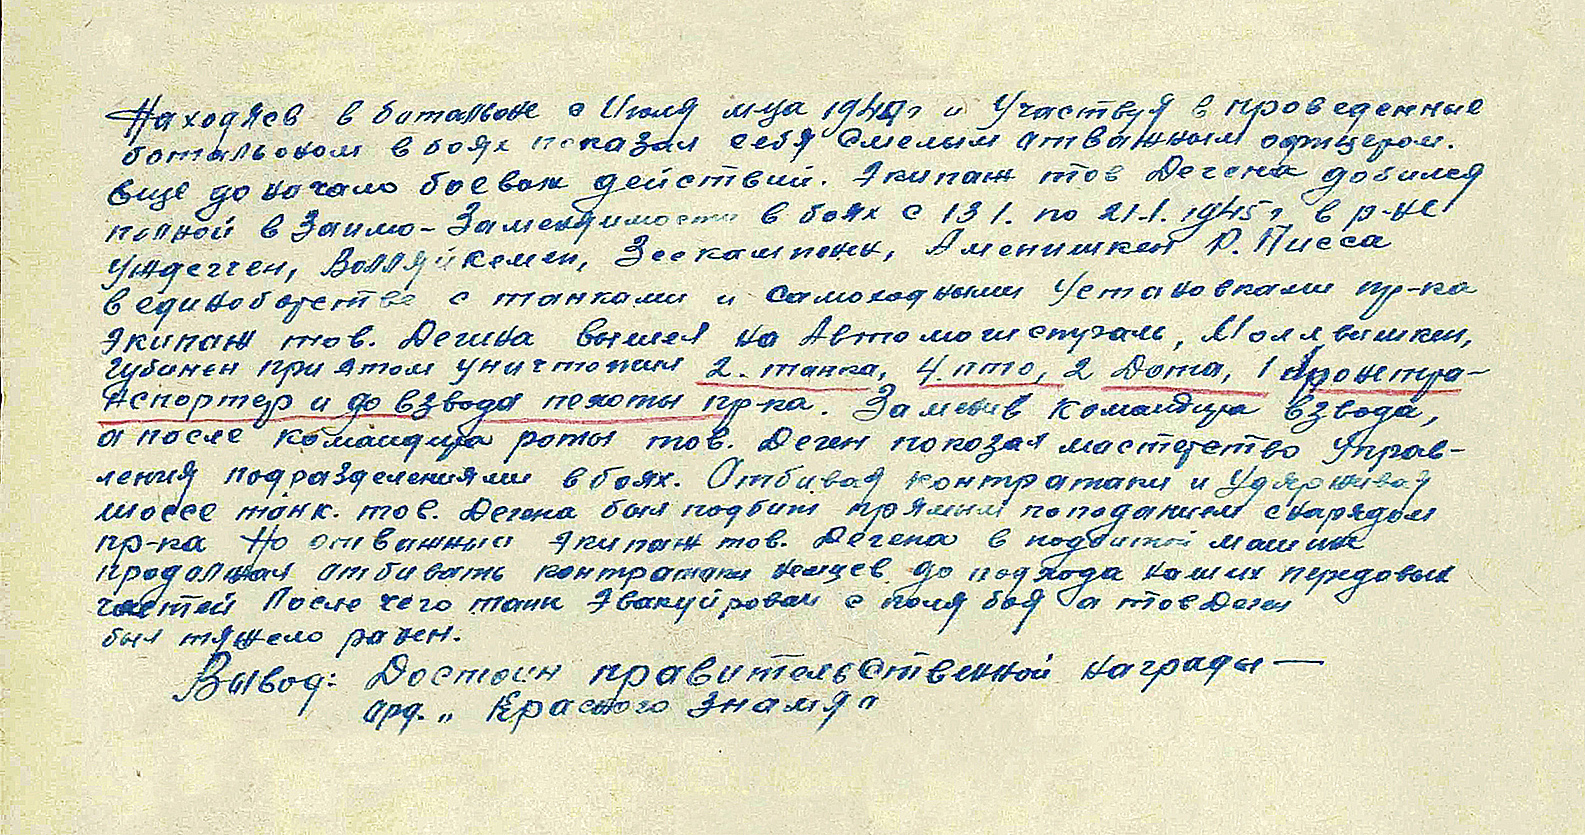 Находясв в батальоне с Июля м-ца 1944г и Участвуя в проведенные
батальоном в боях показал себя Смелым отважным офицером.
Еще до начало боевых действий. Экипаж тов Дегена добился
полной в Заимо-Заменяимости в боях с 13 1. по 21.1. 1945г в р-не
Уждегген, Волляйкемен, Зескампенн, Аменишкен Р. Писса
в единоборстве с танками и самоходными Установками пр-ка
Экипаж тов. Дегена вышел на Автомогистраль, Моллвишкен,
Губинен при этом уничтожил 2. танка, 4. пто, 2 Дота, 1 бронетра-
нспортер и до взвода пехоты пр-ка. Заменив командира взвода,
а после командира роты тов. Деген показал мастерство Управ-
ления подразделениями в боях. Отбивая контратаки и Удерживая
шоссе танк. тов. Дегена был подбит прямым поподанием снарядом
пр-ка Но отважный экипаж тов. Дегена в подбитой машине
продолжал отбивать контратаки немцев до подхода наших передовых
частей После чего танк Эвакуйрован с поля боя а тов Деген
был тяжело ранен.
Вывод: Достоин правительственной награды —
орд. „ Красного Знамя"